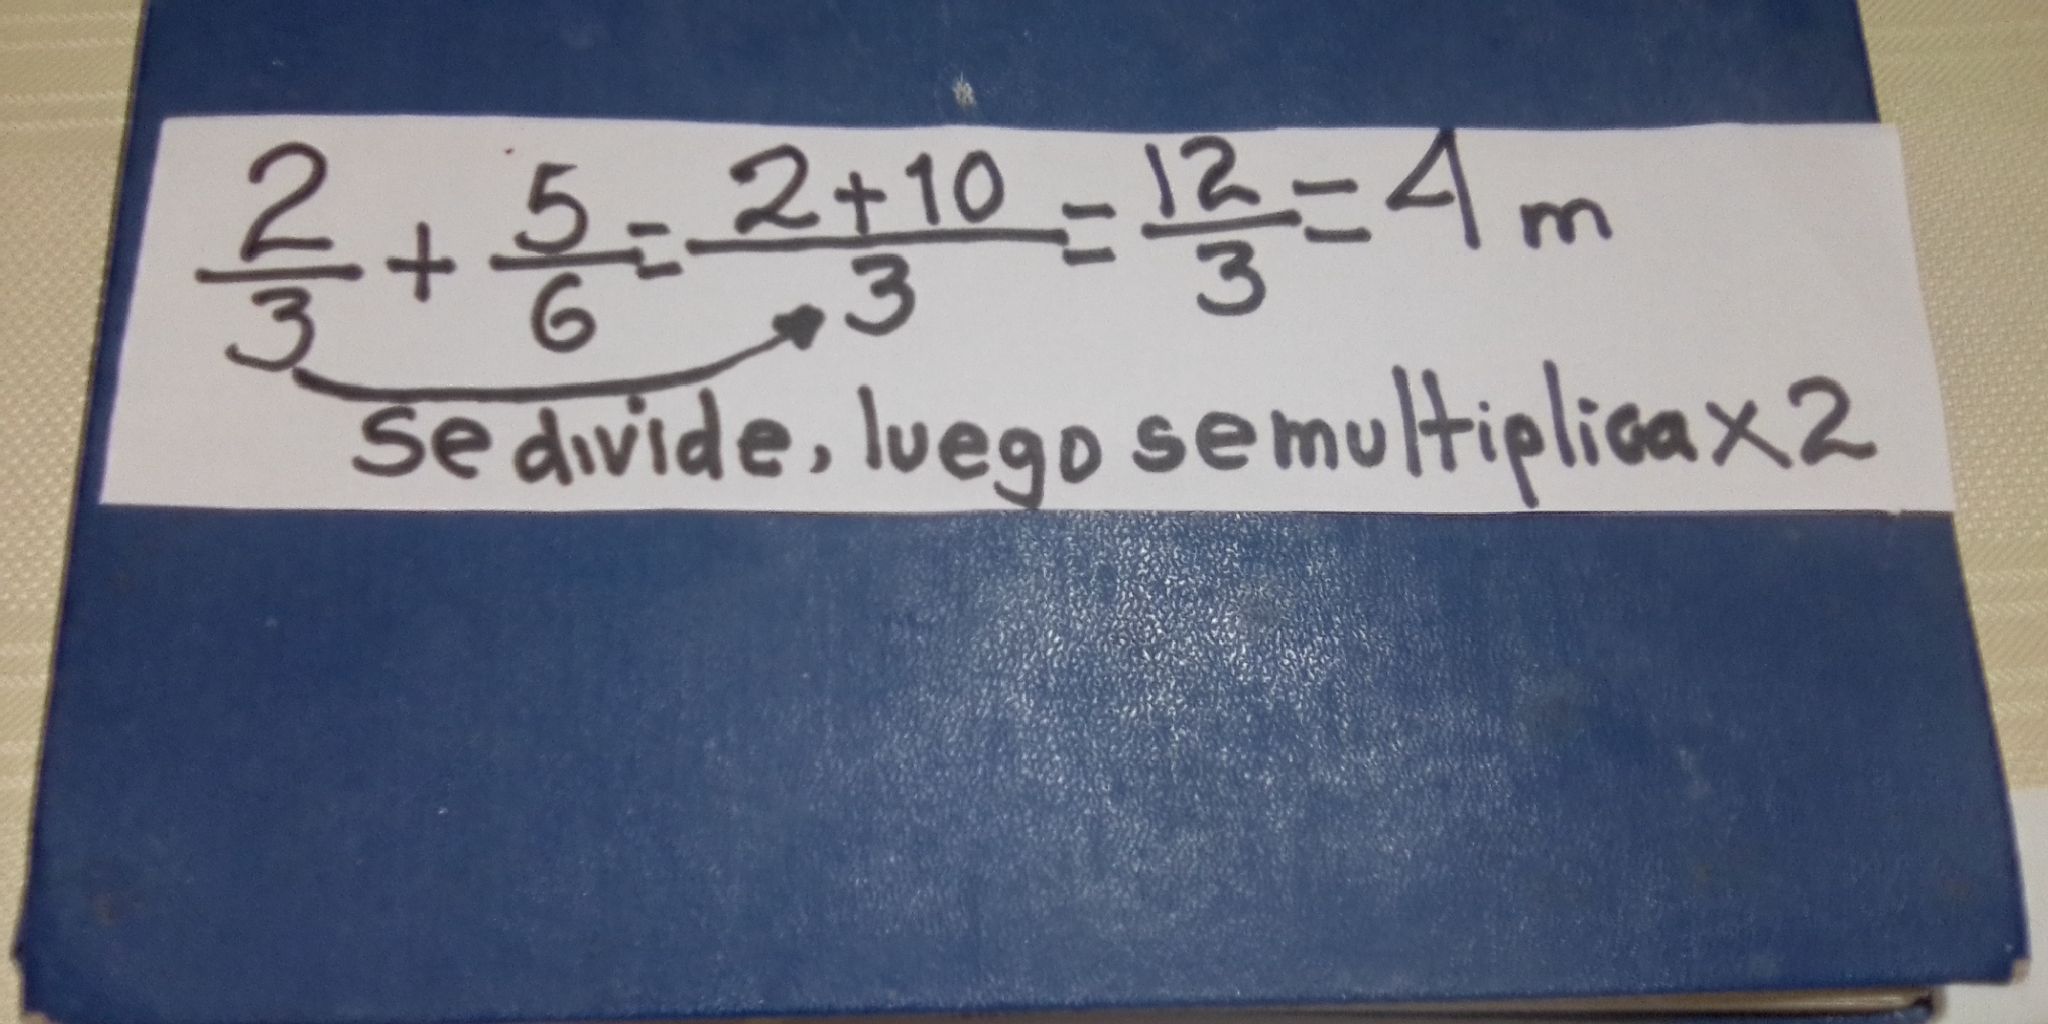 2/3 + 5/6 = 2+10/3 = 12/3 = 4 m
se divide, luego se multiplica x 2